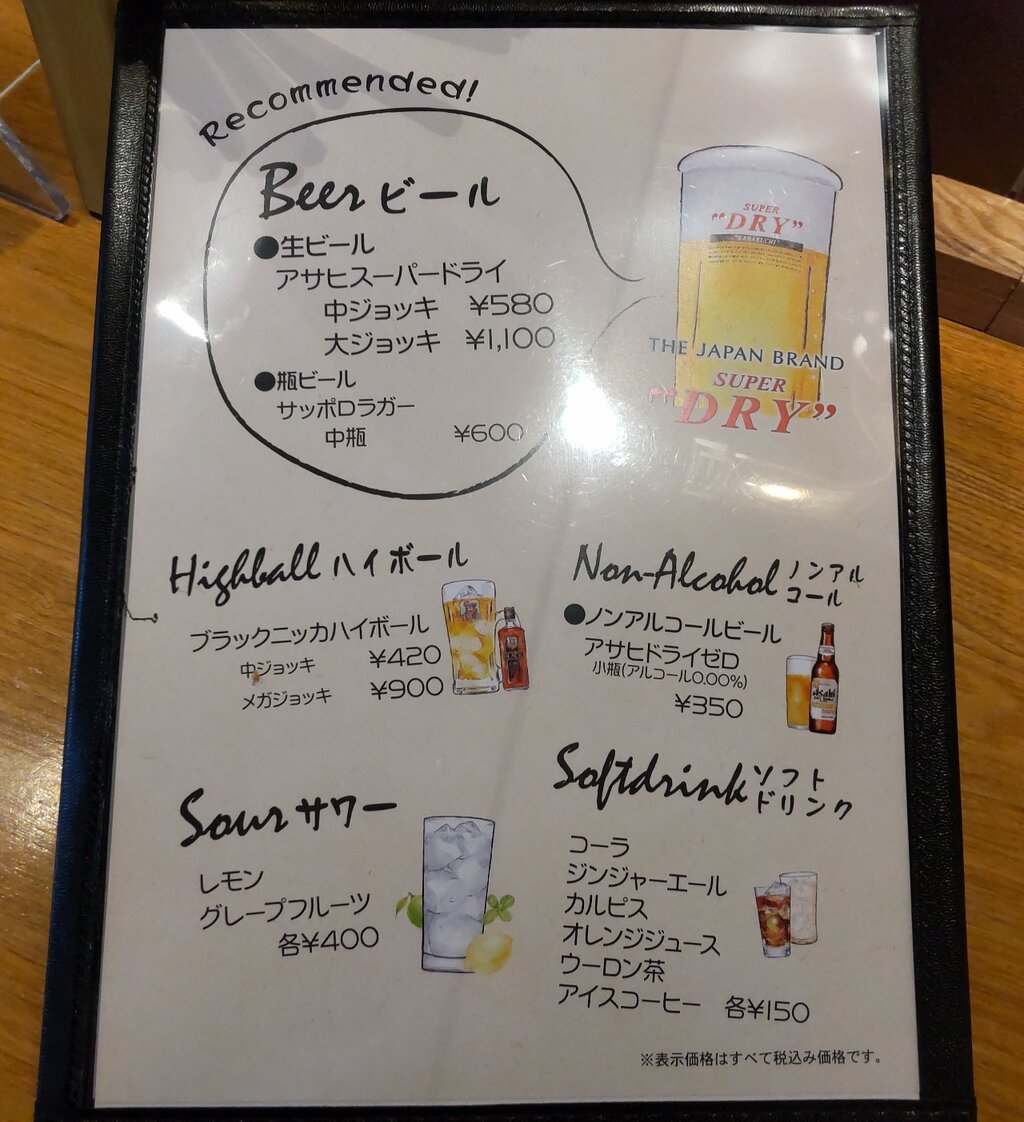 Recommended!
Beer ビール
●生ビール
アサヒスーパードライ
中ジョッキ ¥580
大ジョッキ ¥1,100
●瓶ビール
サッポロラガー
中瓶 ¥600
SUPER
"DRY"
"KARAKUCHI"
THE JAPAN BRAND
SUPER
"DRY"
Highball ハイボール
ブラックニッカハイボール
中ジョッキ ¥420
メガジョッキ ¥900
Non-Alcohol ノンアル
コール
●ノンアルコールビール
アサヒドライゼロ
小瓶(アルコール0.00%)
¥350
Asahi
Sour サワー
レモン
グレープフルーツ
各¥400
Softdrink ソフト
ドリンク
コーラ
ジンジャーエール
カルピス
オレンジジュース
ウーロン茶
アイスコーヒー 各¥150
※表示価格はすべて税込み価格です。